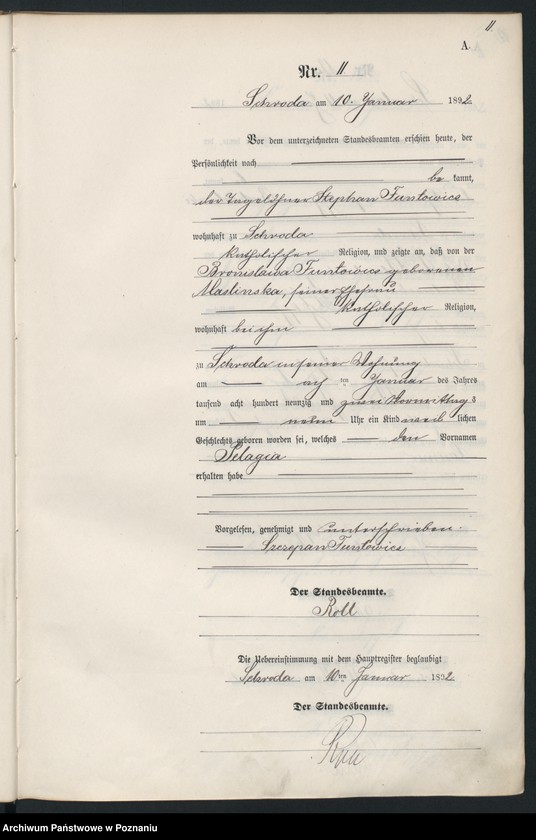 11.
A.
Nr. 11
Schroda am 10. Januar 1892
Vor dem unterzeichneten Standesbeamten erschien heute, der
Persönlichkeit nach
be kannt,
der Tagelöhner Stephan Funtowicz
wohnhaft zu Schroda
katholischer Religion, und zeigte an, daß von der
Bronislawa Funtowicz geborenen
Maslinska, seiner Ehefrau
katholischer Religion,
wohnhaft bei ihm
zu Schroda in seiner Wohnung
am ten Januar des Jahres
tausend acht hundert neunzig und zwei Vormittags
um neun Uhr ein Kind weib lichen
Geschlechts geboren worden sei, welches den Vornamen
Pelagia
erhalten habe
Vorgelesen, genehmigt und unterschrieben.
Szczepan Funtowicz
Der Standesbeamte.
Roll
Die Uebereinstimmung mit dem Hauptregister beglaubigt
Schroda am 10ten Januar 1892
Der Standesbeamte.
Roll
Archiwum Państwowe w Poznaniu